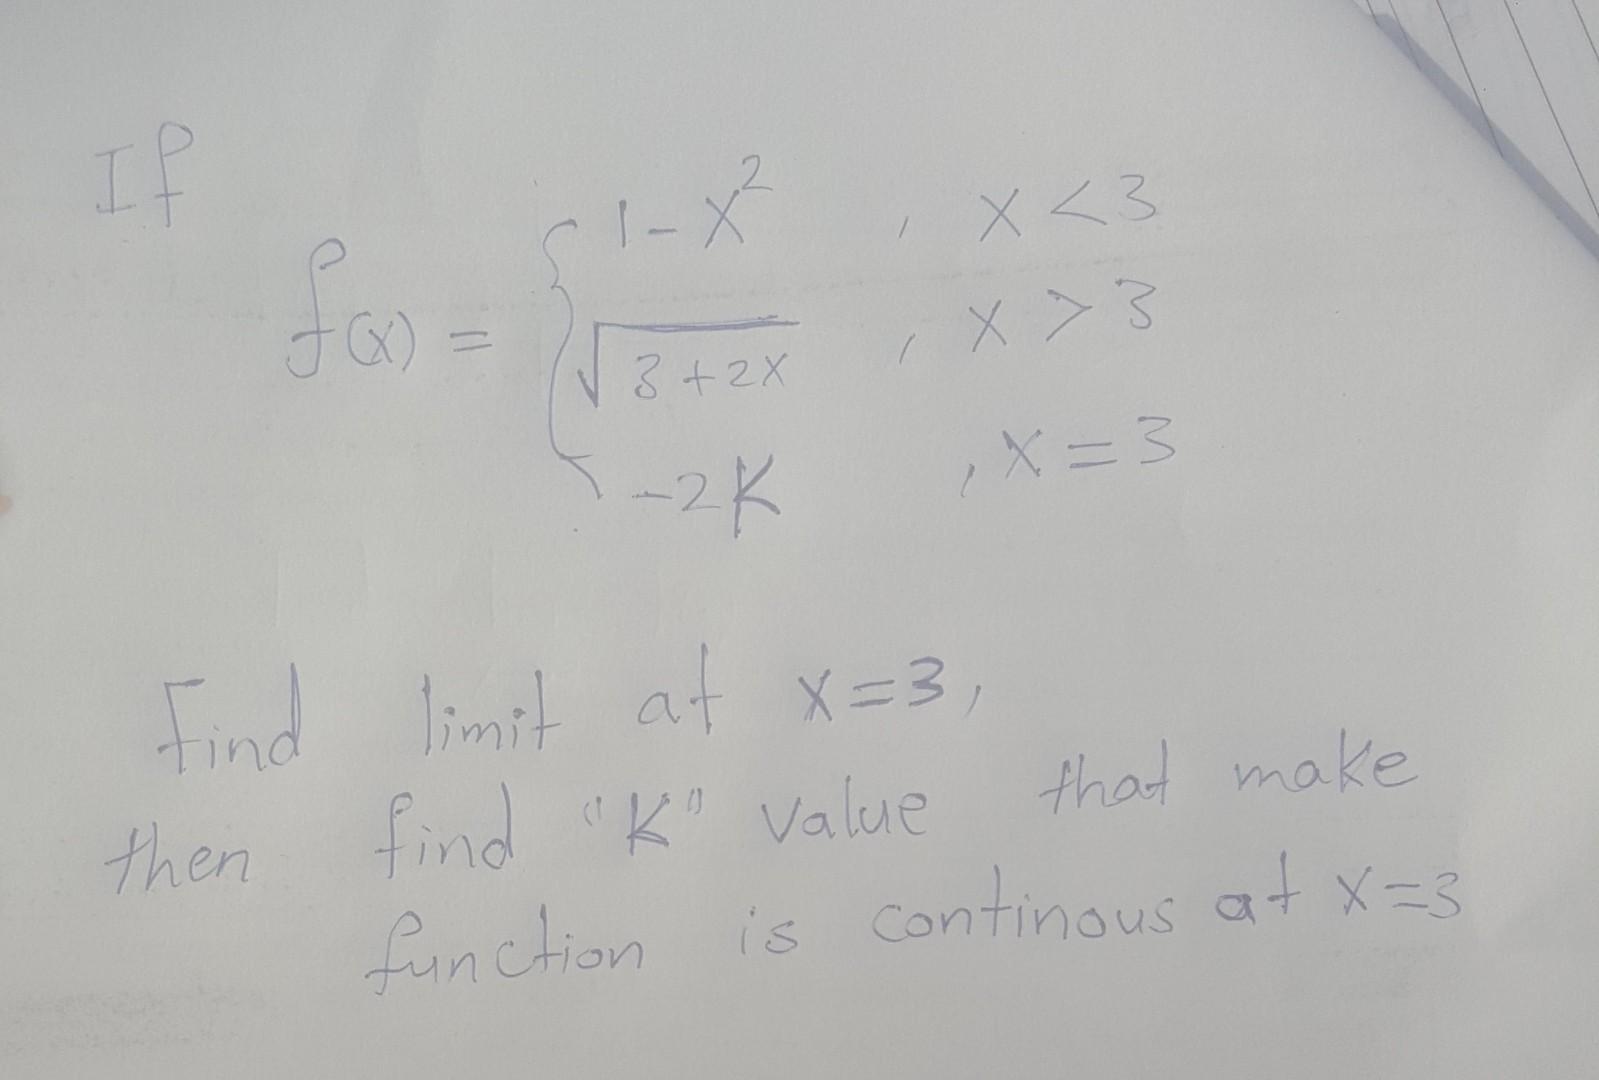 If
f(x) = { 1 - x² , x < 3
√(3 + 2x) , x > 3
-2K , x = 3
Find limit at x = 3,
then find "K" value that make
function is continous at x = 3